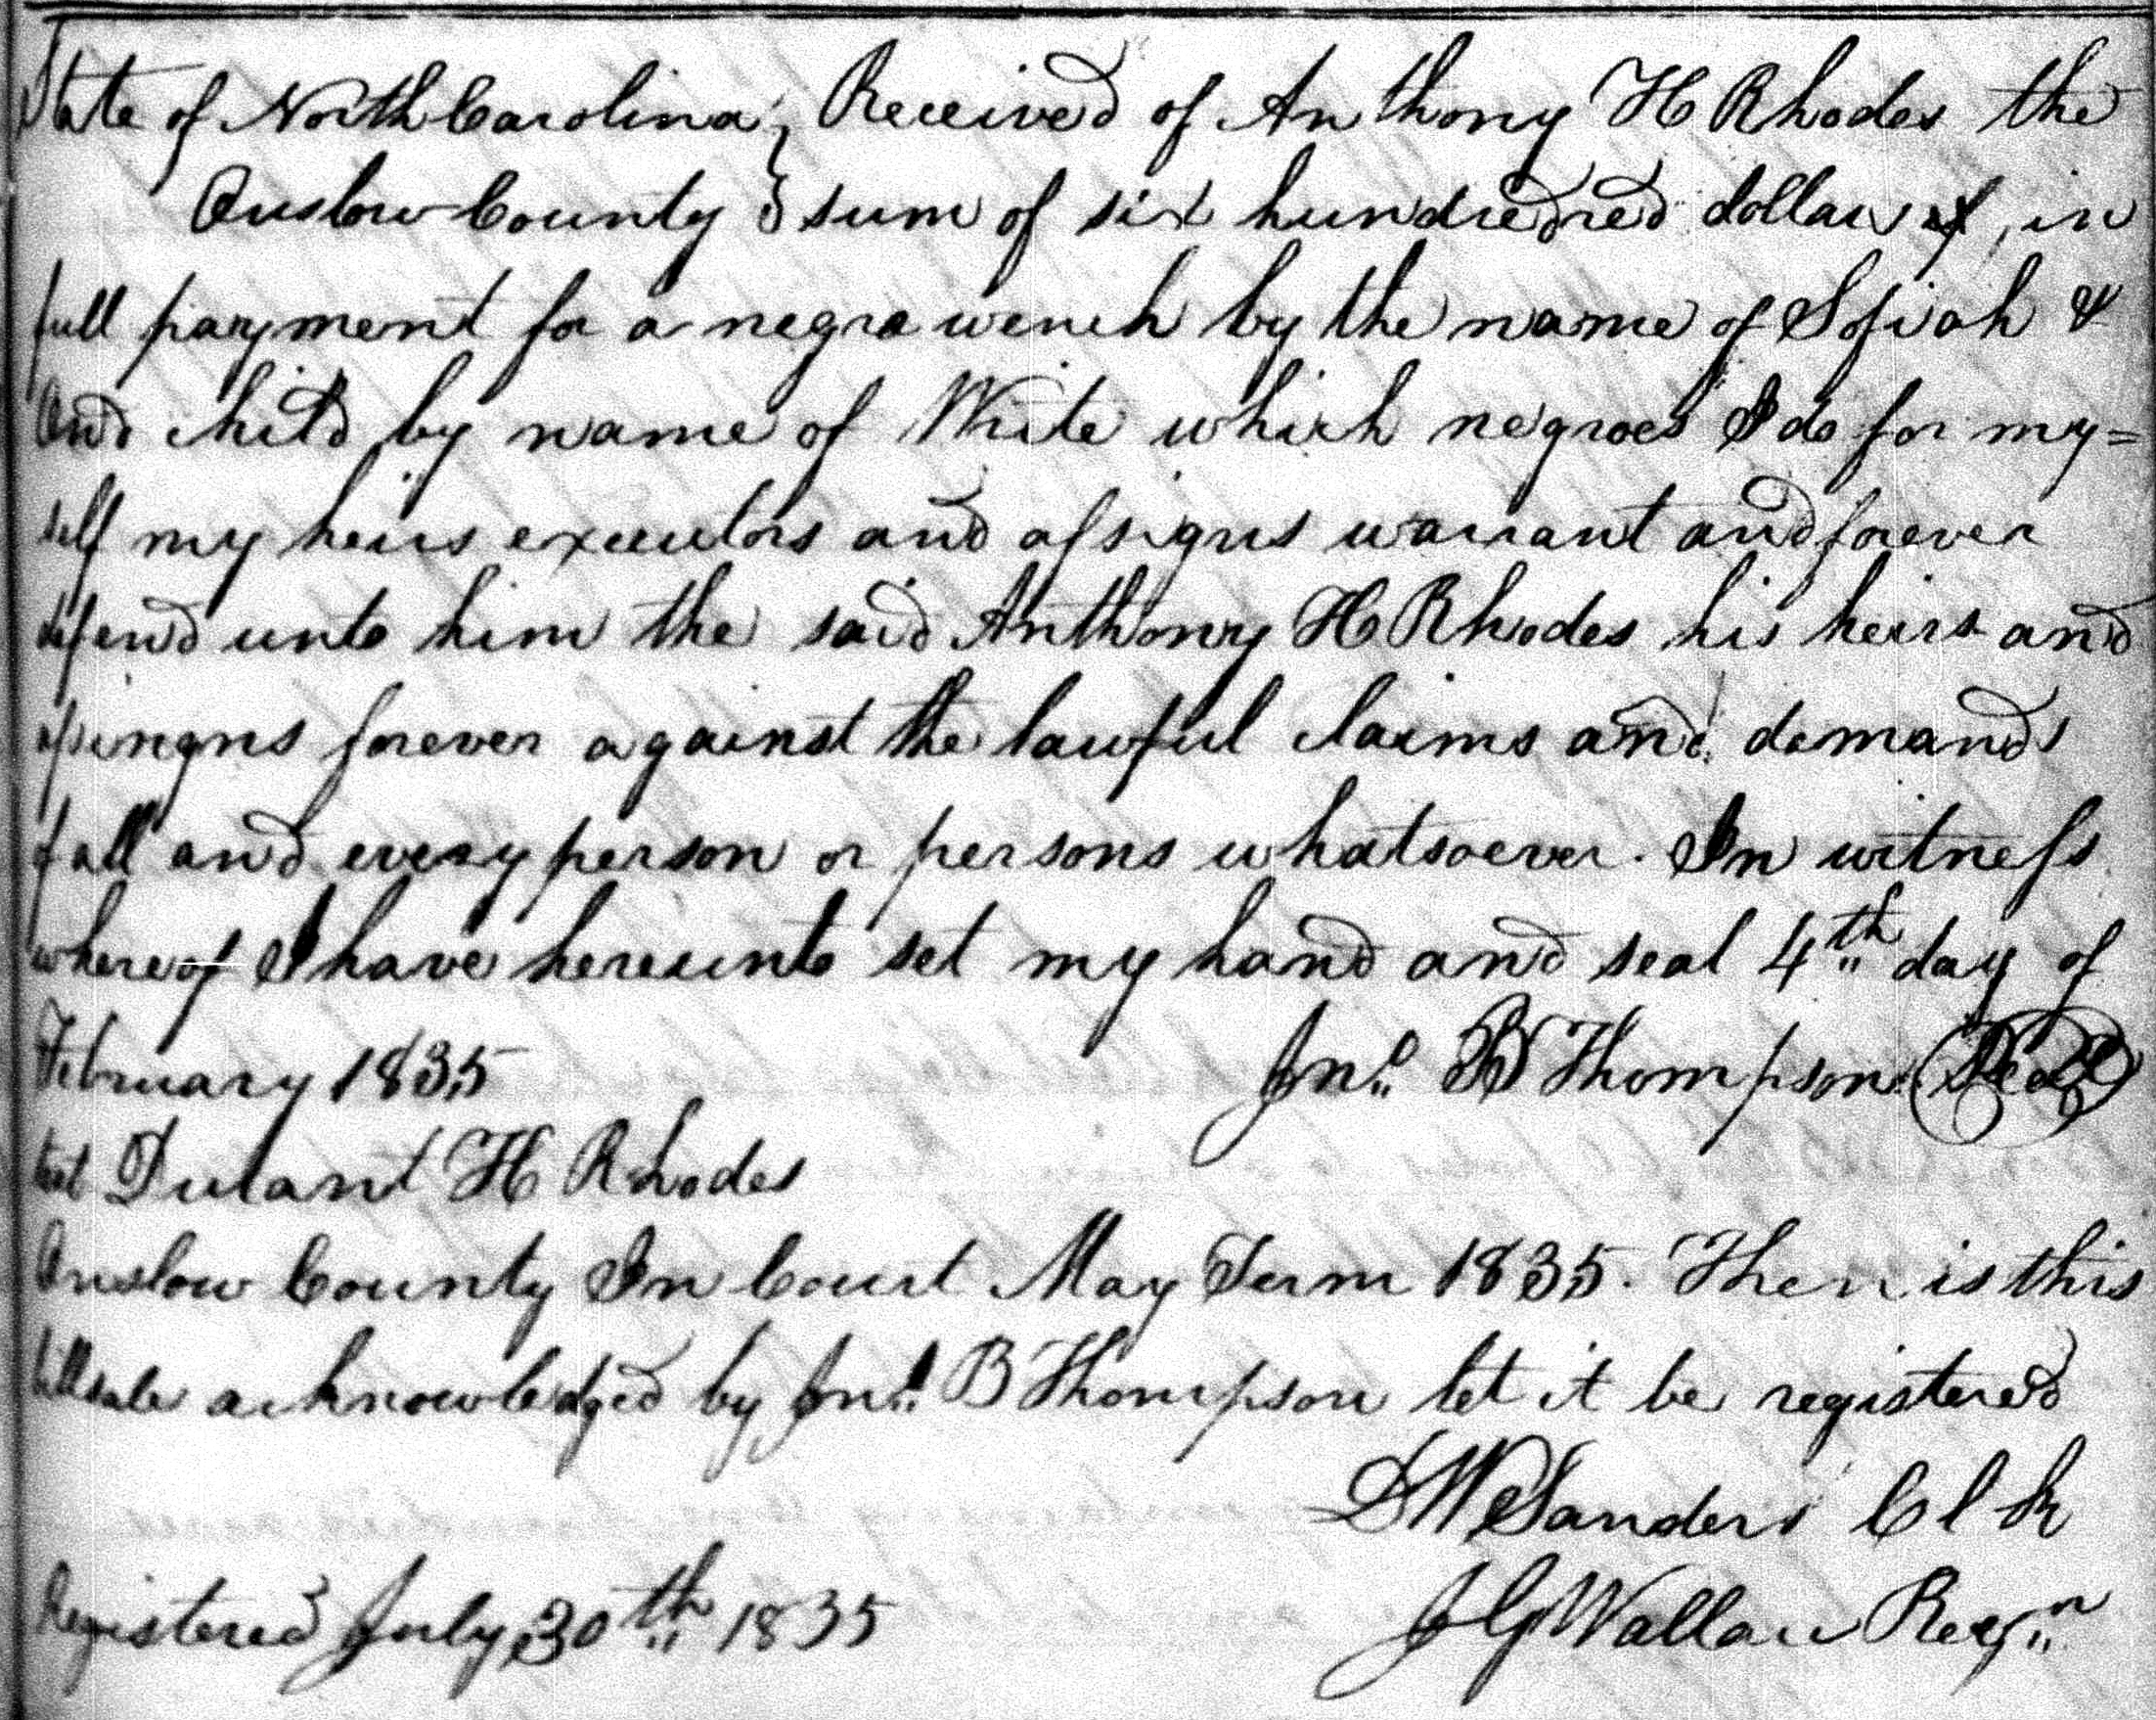 State of North Carolina } Received of Anthony H Rhodes the
Onslow County } sum of six hundredred dollars, in
full payment for a negro wench by the name of Sofiah &
And child by name of Write which negroes I do for my=
self my heirs executors and assigns warrant and forever
defend unto him the said Anthony H Rhodes his heirs and
assingns forever against the lawful claims and demands
of all and every person or persons whatsoever. In witness
whereof I have hereunto set my hand and seal 4th day of
February 1835 Jno B Thompson Seal
test Durant H Rhodes
Onslow County In Court May Term 1835. Then is this
billsale acknowledged by Jno B Thompson let it be registered
D W Sanders Clk
Registered July 30th 1835 J G Wallace Regr